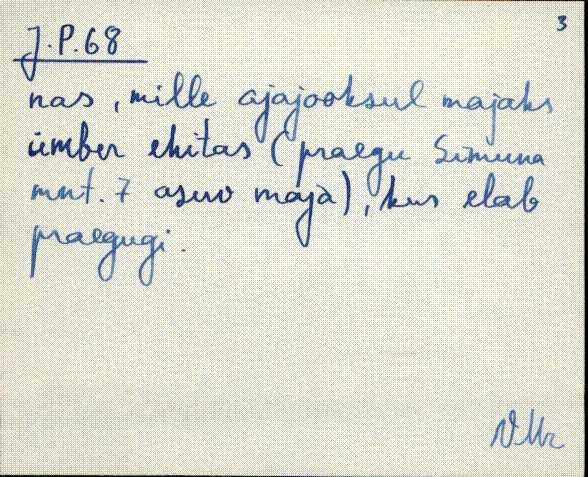 3
J.P.68
nas, mille ajajooksul majaks
ümber ehitas (praegu Simuna
mnt. 7 asuv maja), kus elab
praegugi.